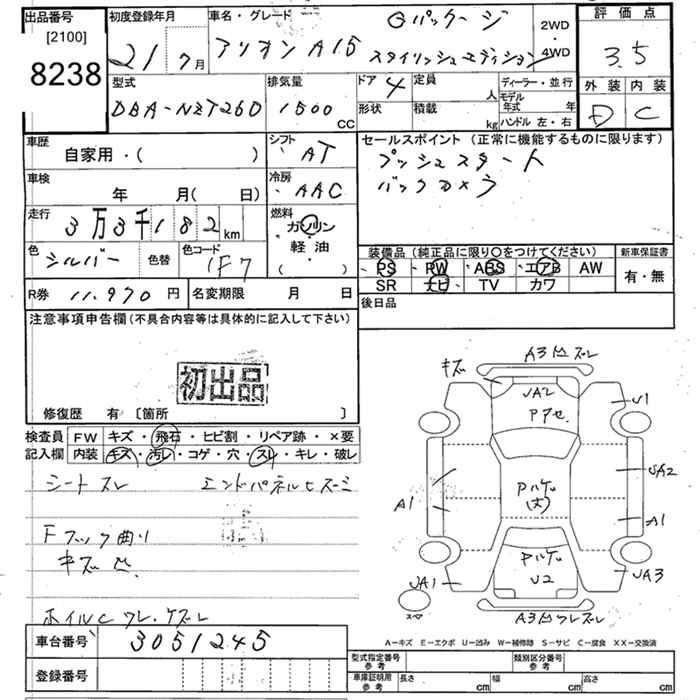 出品番号 初度登録年月 車名・グレード Gパッケージ 2WD ・ 4WD 評価点
[2100]
8238
21 7月 アリオン A15 スタイリッシュエディション 3.5
型式 排気量 ドア 4 定員 人 ディーラー・並行 外装 内装
DBA-NZT260 1500 CC 形状 積載 kg モデル年式 年 D C
ハンドル 左・右
車歴 シフト セールスポイント (正常に機能するものに限ります)
自家用・( ) AT プッシュスタート
車検 冷房 バックカメラ
年 月( 日) AAC
走行 燃料
3万3千182km ガソリン
軽・油
( )
色 シルバー 色替 色コード 1F7
装備品 (純正品に限り〇をつけてください) 新車保証書
PS PW ABS エアB AW 有・無
SR ナビ TV カワ
R券 11,970円 名変期限 月 日 後日品
注意事項申告欄 (不具合内容等は具体的に記入して下さい)
初出品
修復歴 有 [箇所 ]
検査員 FW キズ・飛石・ヒビ割・リペア跡・×要
記入欄 内装 キズ・汚レ・コゲ・穴・スレ・キレ・破レ
シートスレ エンドパネルヒズミ
Fフック曲り
キズ凹
ホイルCワレ・ケズレ
キズ A3凹ズレ
UA2 U1
アケセ
UA2
A1 A1
UA1 U2 UA3
スペア A3凹ワレズレ
A-キズ E-エクボ U-凹み W-補修跡 S-サビ C-腐食 XX-交換済
車台番号 3051245
登録番号
型式指定番号 参考 類別区分番号 参考
車庫証明用 参考 長さ cm 幅 cm 高さ cm